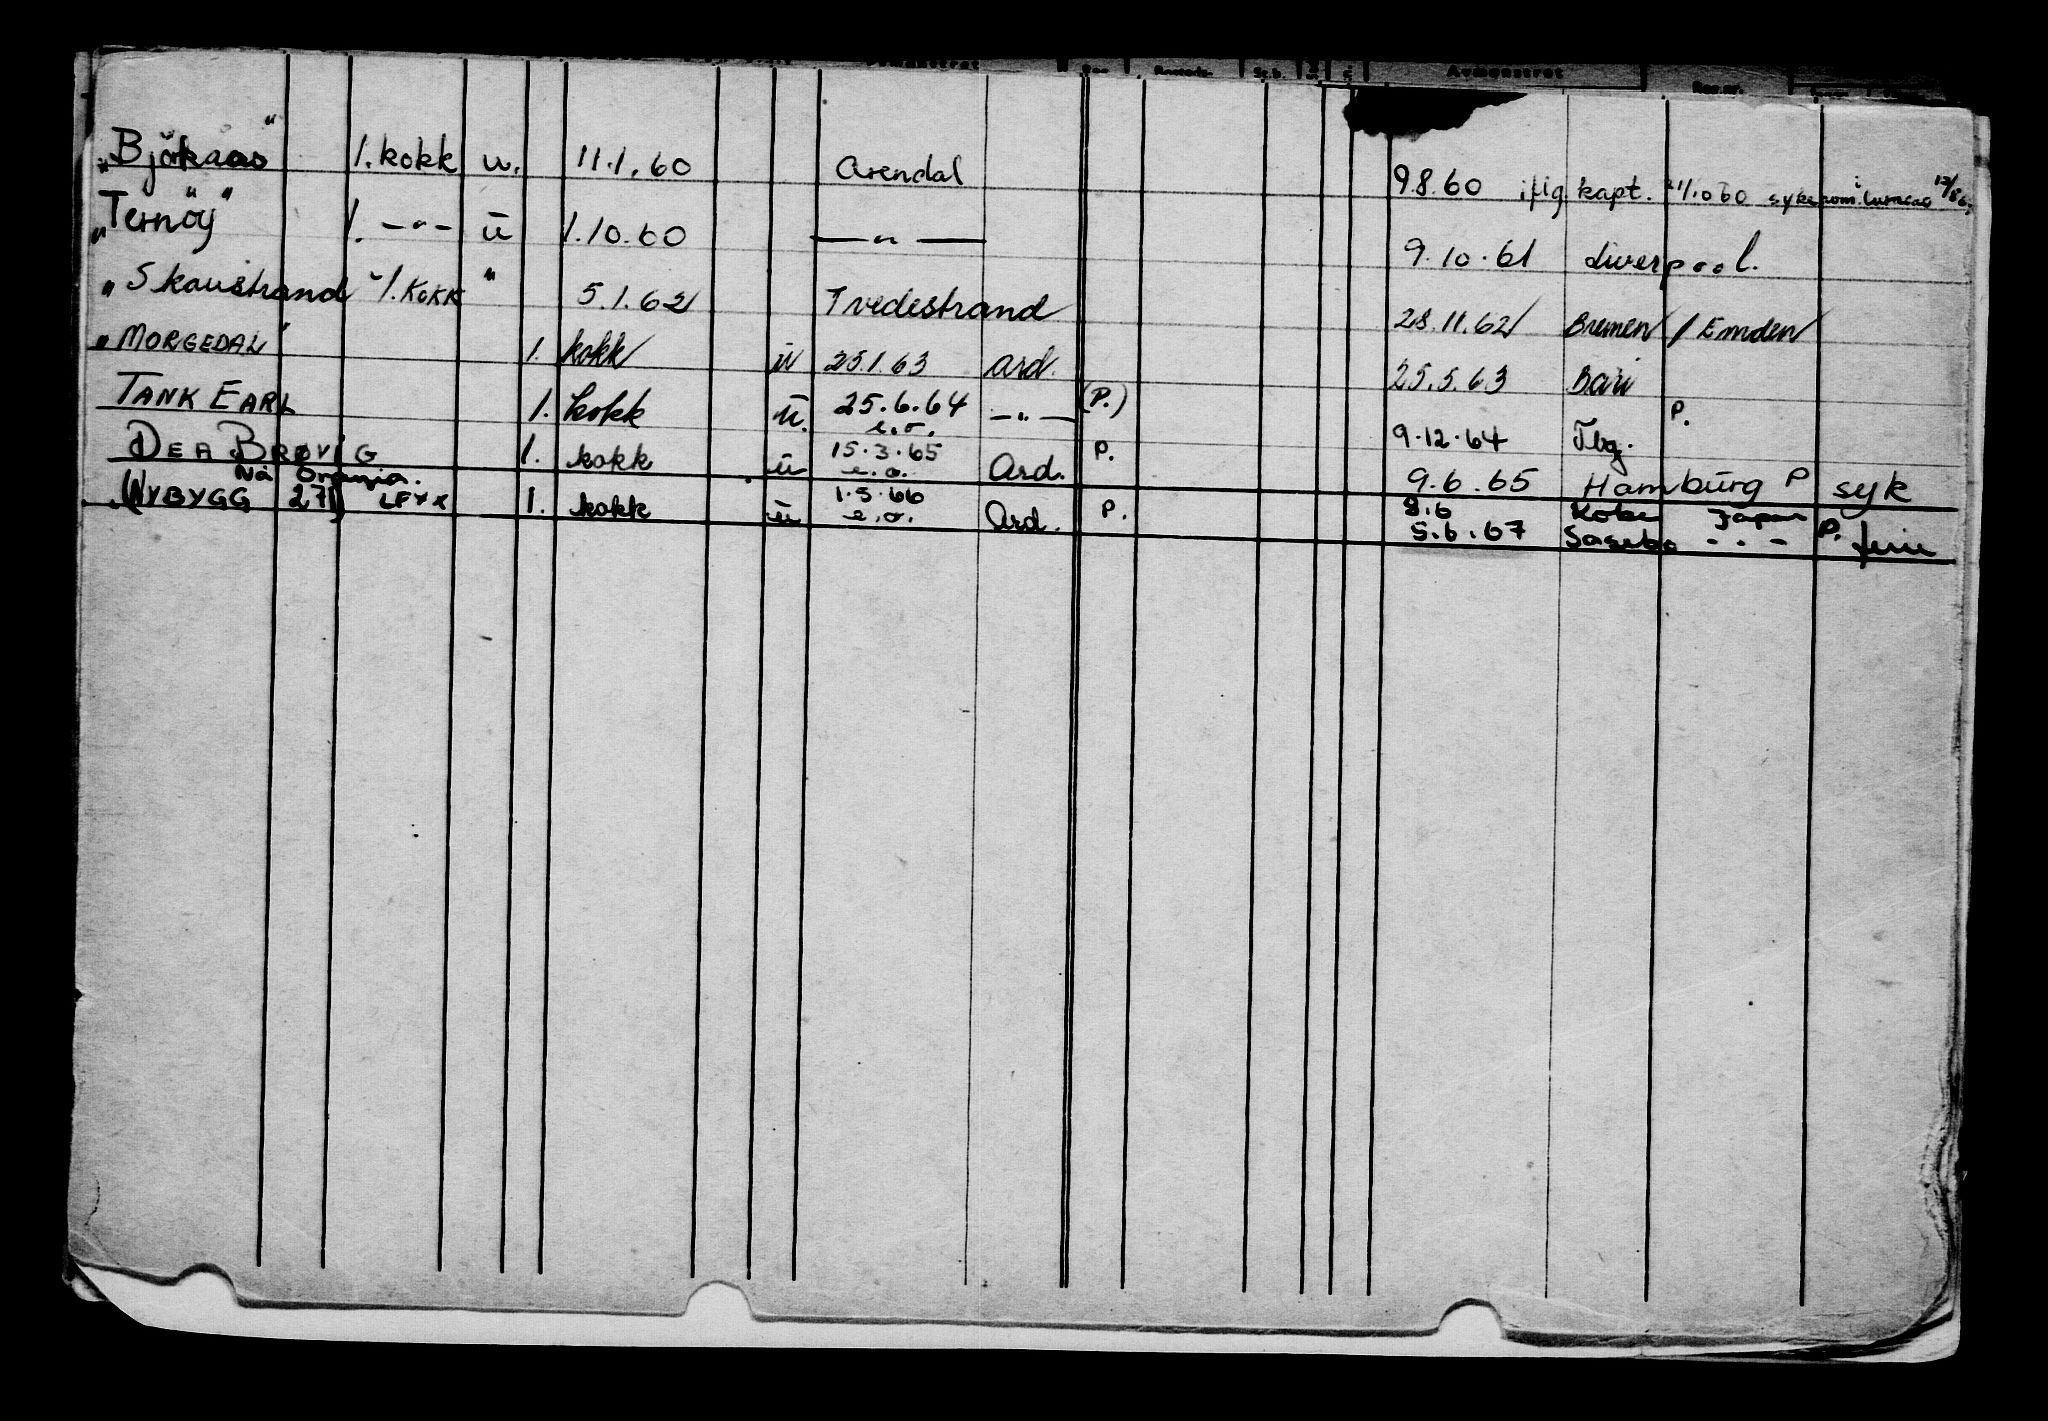 Avmønstret
"Bjørkaas" 1. kokk u. 11.1.60 Arendal 9.8.60 iflg kapt.
"Ternøy" 1. —"— u 1.10.60 —"— 9.10.61 Liverpool.
"Skaustrand" 1. KOKK " 5.1.62 Tvedestrand 28.11.62 Bremen / Emden
"MORGEDAL" 1. kokk u 25.1.63 Ard. 25.5.63 Bari
TANK EARL 1. kokk u. 25.6.64 e.o. —"— (P.) 9.12.64 Tbg. P.
DEA BRØVIG 1. kokk u 15.3.65 e.o. Ard. P. 9.6.65 Hamburg P syk
Nå Oranja.
(NYBYGG 271) 1. kokk u 1.5.66 e.o. Ard. P. 8.6 Kobe Japan
5.6.67 Sasebo -"- P. ferie